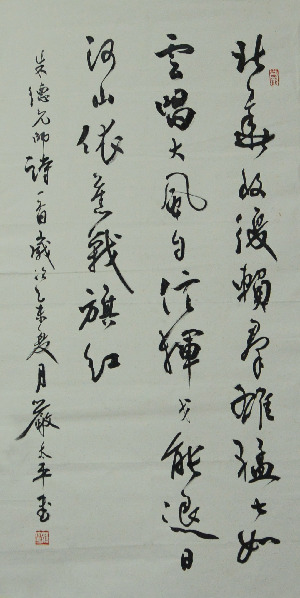 北華收復賴羣雄猛士如
雲唱大風自信揮戈能退日
河山依舊戰旗紅
朱德元帥詩一首歲次乙未夏月嚴太平書